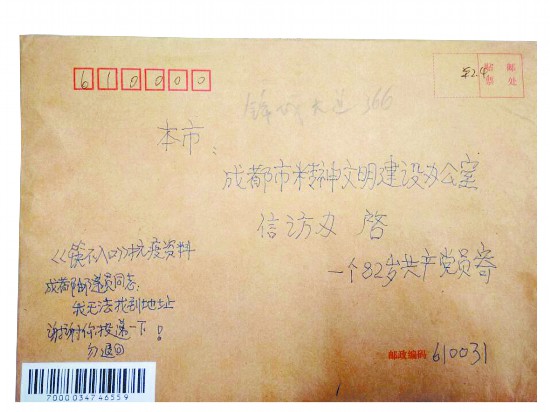 610000
贴邮
票处
至2.4
锦城大道366
本市:
成都市精神文明建设办公室
信访办 启
一个82岁共产党员寄
《筷不入口》抗疫资料
成都邮递员同志:
我无法找到地址
谢谢你投递一下!
勿退回
邮政编码 610031
7000034746559